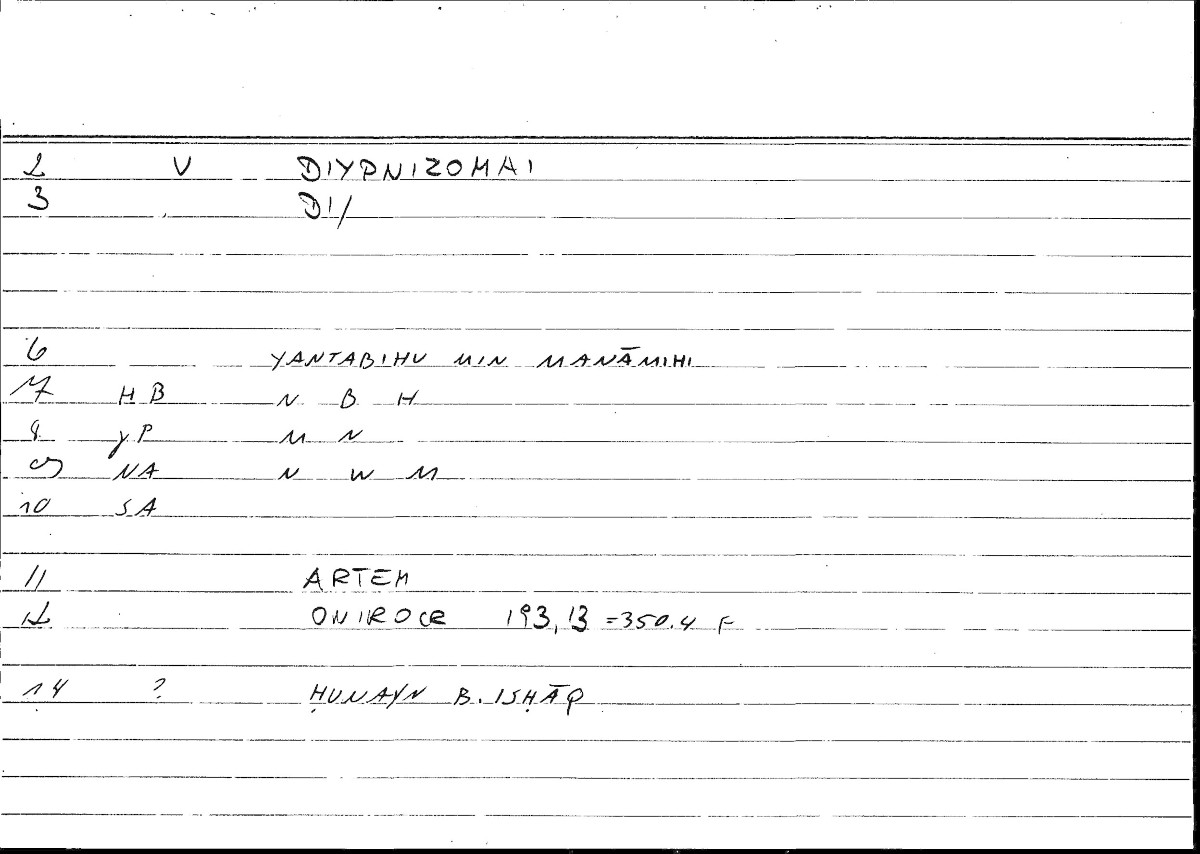 2 V DIYPNIZOMAI
3 DI/
6 YANTABIHU MIN MANĀMIHI
7 HB N B H
8 YP M N
9 NA N W M
10 SA
11 ARTEM
12 ONIROCR 193,13 =350.4 F
14 ? ḤUNAYN B. ISḤĀQ